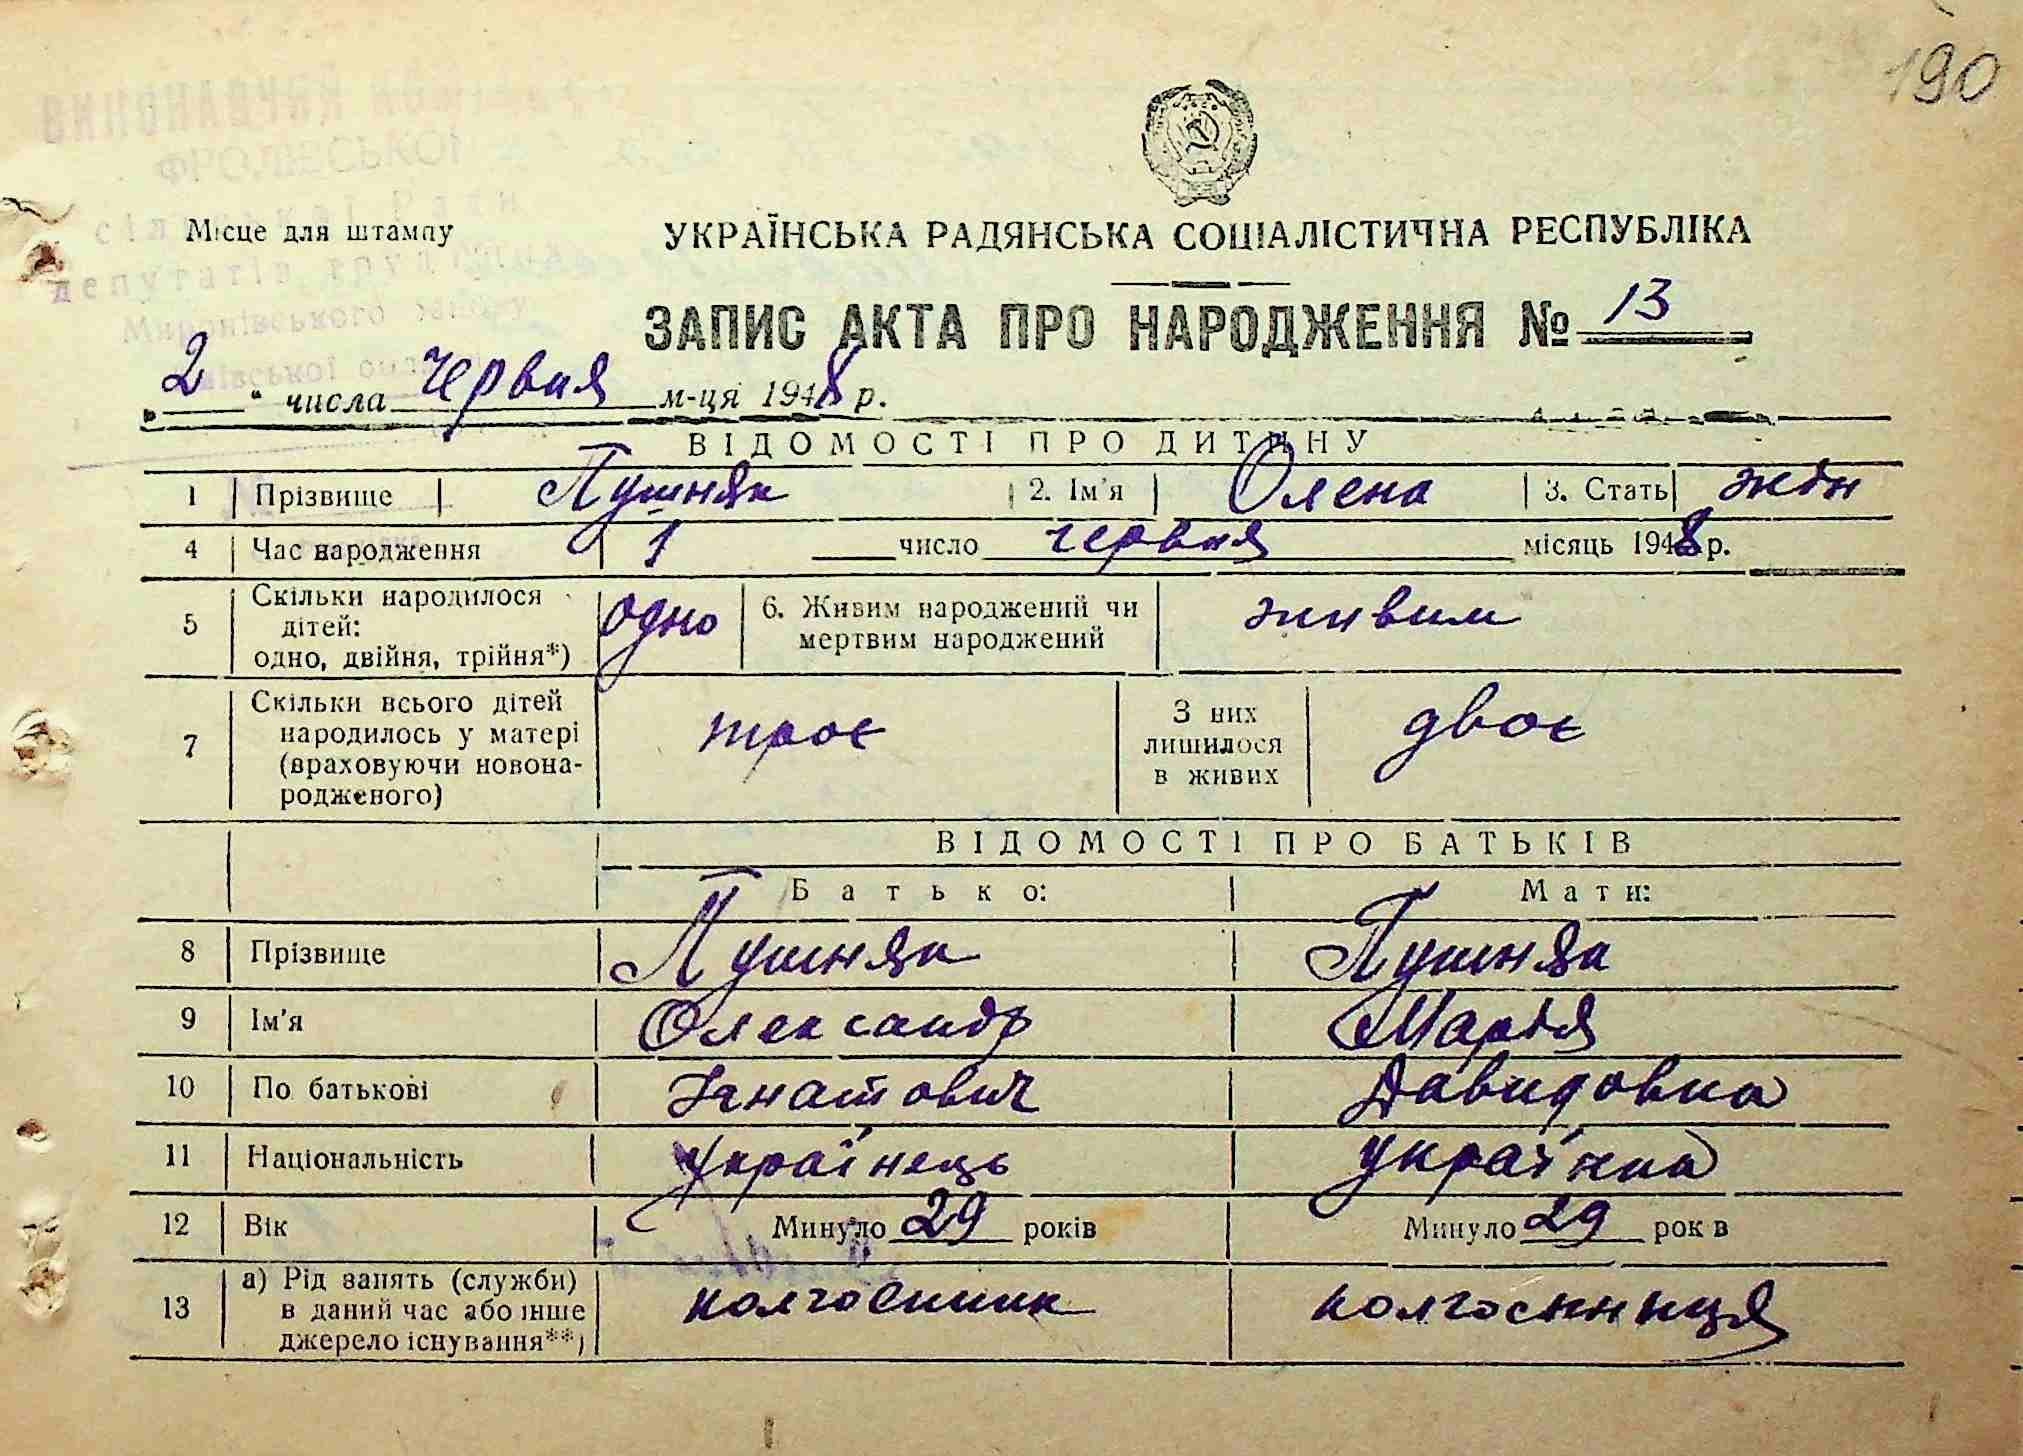 190
ВИКОНАВЧИЙ
ФРОЛІВСЬКОЇ
сільської Ради
депутатів трудящих
Миронівського району
Місце для штампу
УКРАЇНСЬКА РАДЯНСЬКА СОЦІАЛІСТИЧНА РЕСПУБЛІКА
ЗАПИС АКТА ПРО НАРОДЖЕННЯ № 13
„2“ числа червня м-ця 1948 р.
ВІДОМОСТІ ПРО ДИТИНУ
1 Прізвище Пушняк 2. Ім'я Олена 3. Стать жін
4 Час народження 1 число червня місяць 1948 р.
5 Скільки народилося дітей: одно, двійня, трійня*) одно 6. Живим народжений чи мертвим народжений живим
7 Скільки всього дітей народилось у матері (враховуючи новонародженого) троє З них лишилося в живих двоє
ВІДОМОСТІ ПРО БАТЬКІВ
Батько: Мати:
8 Прізвище Пушняк Пушняк
9 Ім'я Олександр Марія
10 По батькові Ігнатович Давидовна
11 Національність українець українка
12 Вік Минуло 29 років Минуло 29 років
13 а) Рід занять (служби) в даний час або інше джерело існування**) колгоспник колгоспниця